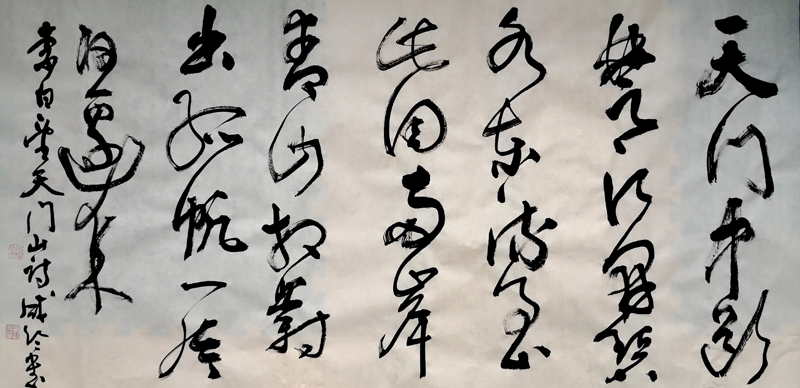 天门中断
楚江开碧
水东流至
此回两岸
青山相对
出孤帆一片
日边来
李白望天门山诗